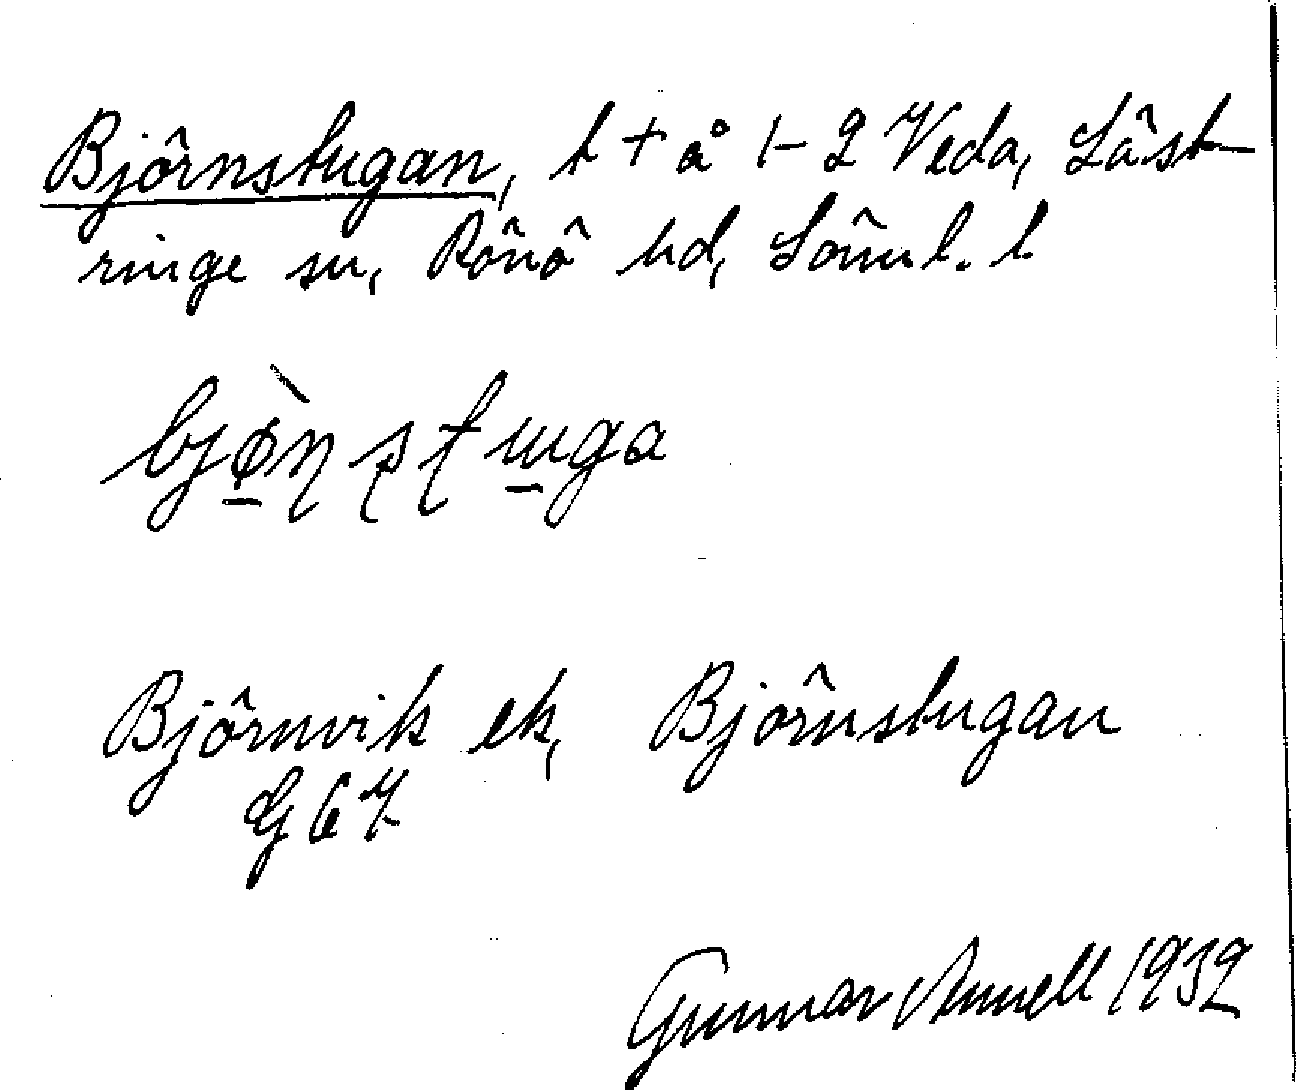 Björnstugan, t + å 1-2 Veda, Läst-
ringe sn, Rönö hd, Söml. l.
bjø̱̀ɳʂʈu̱ga
Björnvik ek, Björnstugan
G 67
Gunnar Annell 1932